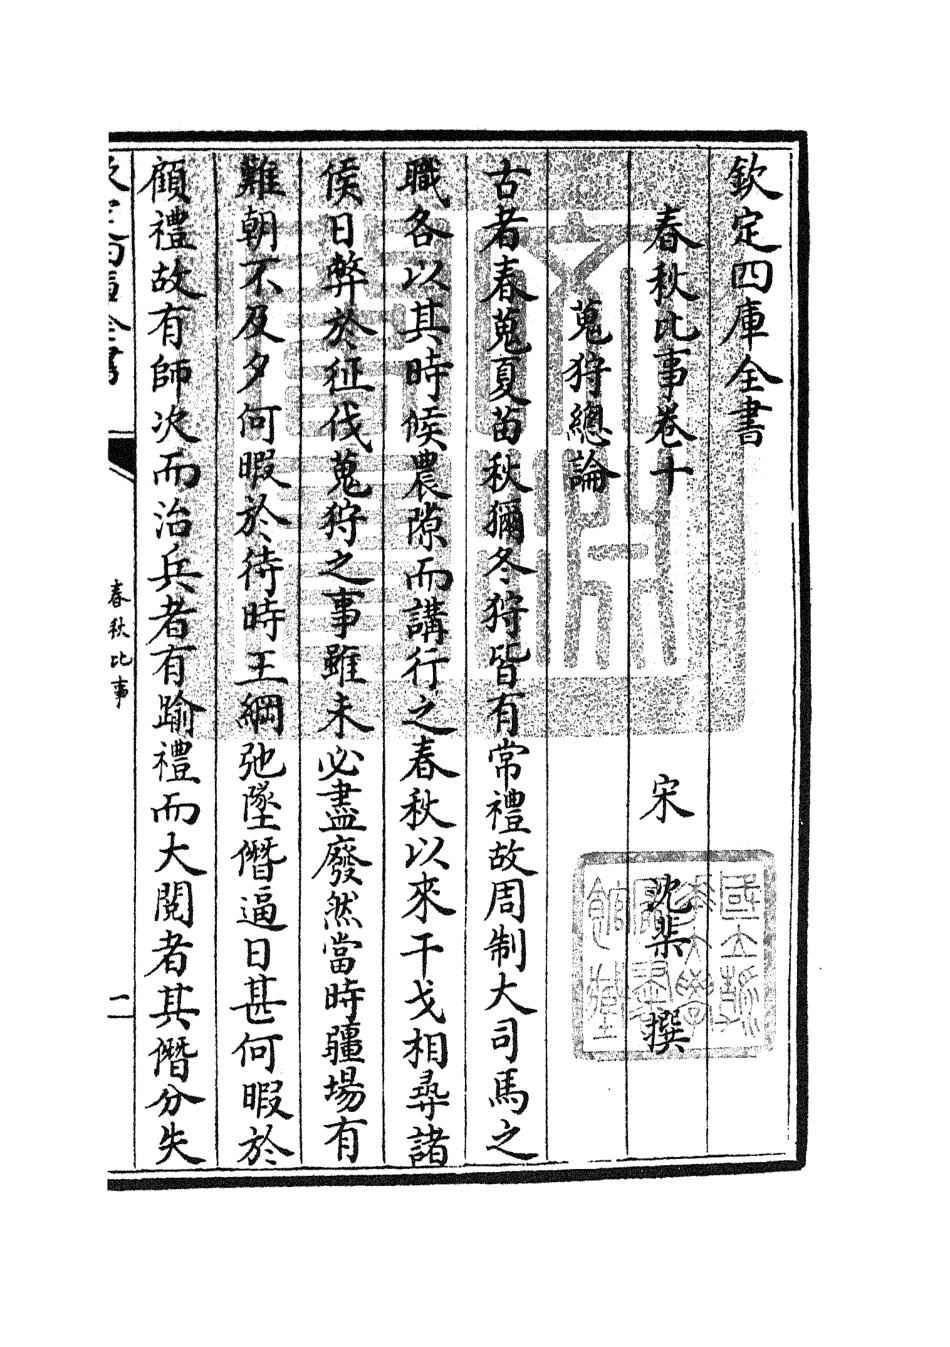 欽定四庫全書
春秋比事卷十
宋 沈棐 撰
蒐狩總論
古者春蒐夏苗秋獮冬狩皆有常禮故周制大司馬之
職各以其時候農隙而講行之春秋以來干戈相尋諸
侯日弊於征伐蒐狩之事雖未必盡廢然當時疆場有
難朝不及夕何暇於待時王綱弛墜僭逼日甚何暇於
顧禮故有師次而治兵者有踰禮而大閱者其僭分失
春秋比事
一